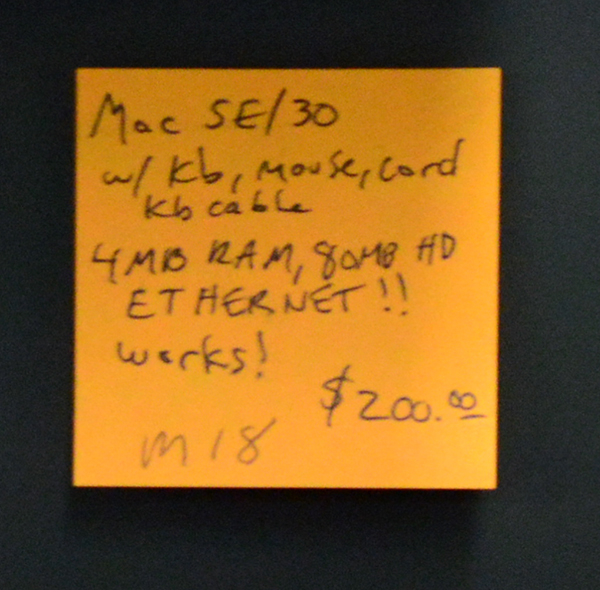 Mac SE/30
w/ Kb, mouse, cord
Kb cable
4MB RAM, 80MB HD
ETHERNET!!
works!
$200.00
M18